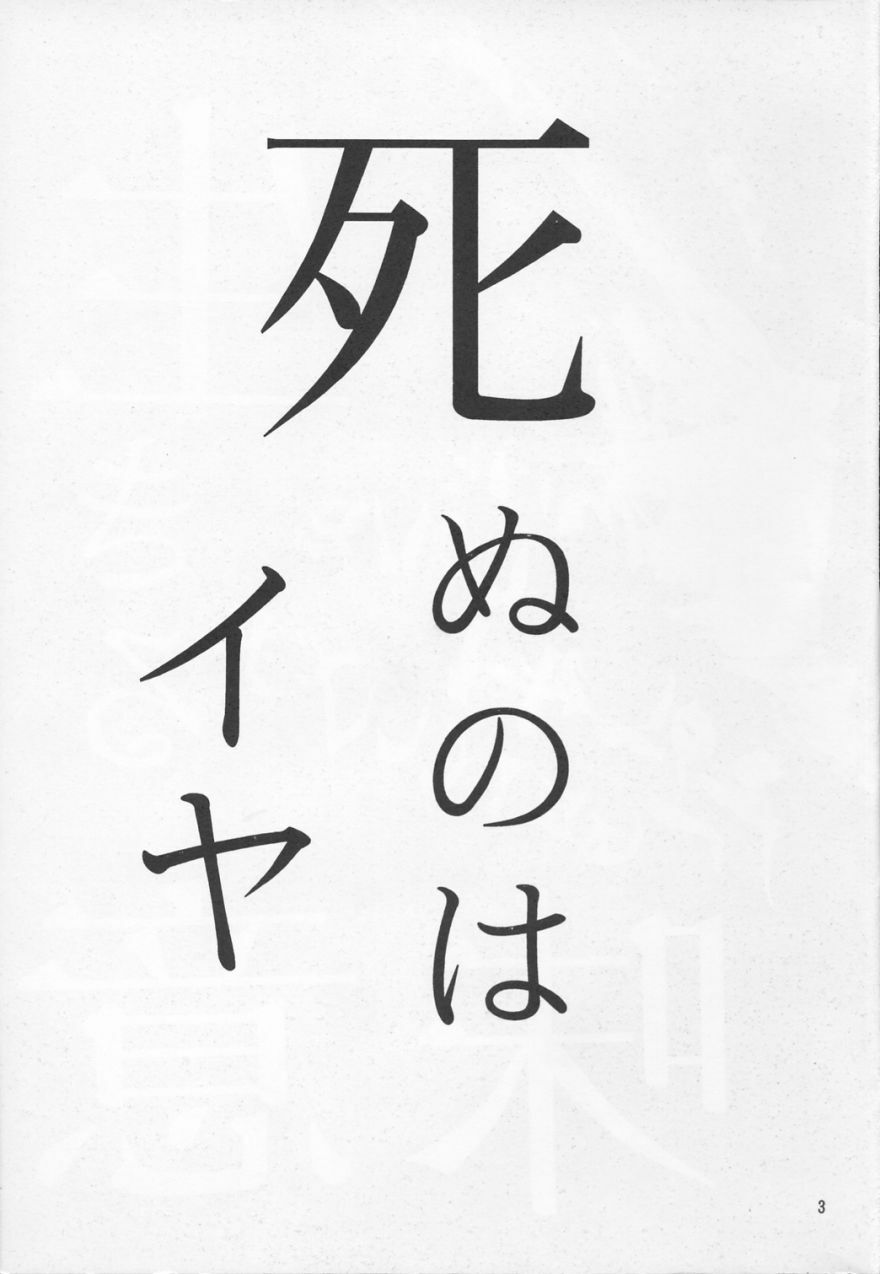 死ぬのは
イヤ
3